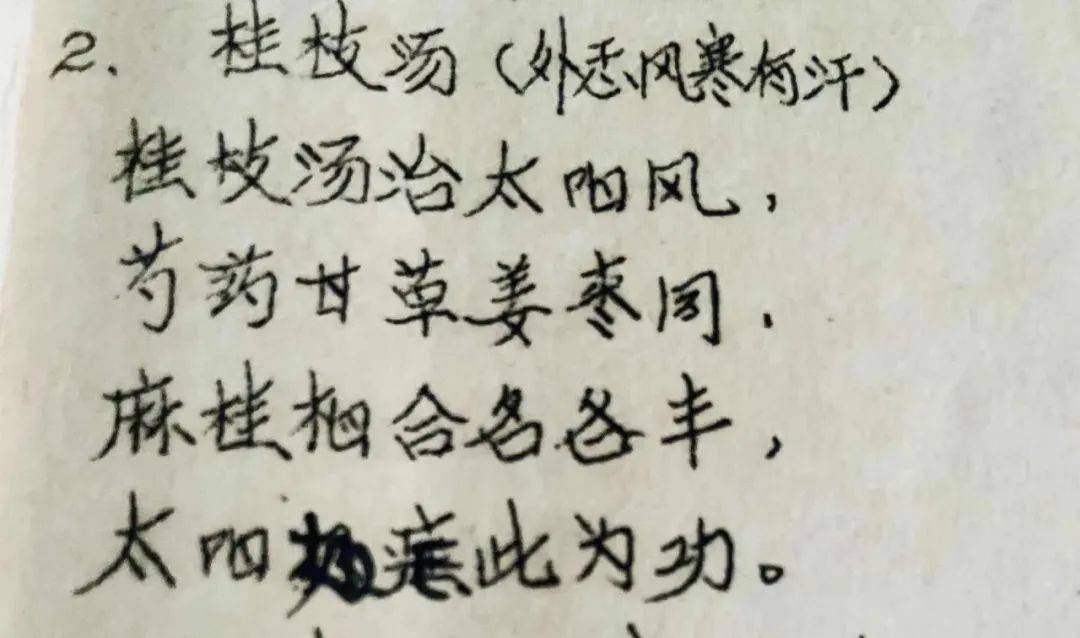 2. 桂枝汤（外恶风寒有汗）
桂枝汤治太阳风，
芍药甘草姜枣同．
麻桂相合名各半，
太阳疟此为功。